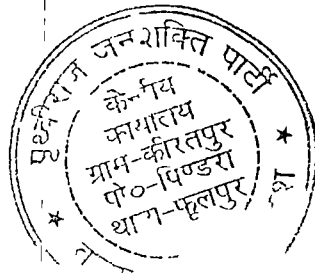 पृथ्वीराज जनशक्ति पार्टी
केन्द्रीय
कार्यालय
ग्राम-कीरतपुर
पो०-पिण्डरा
थाना-फूलपुर